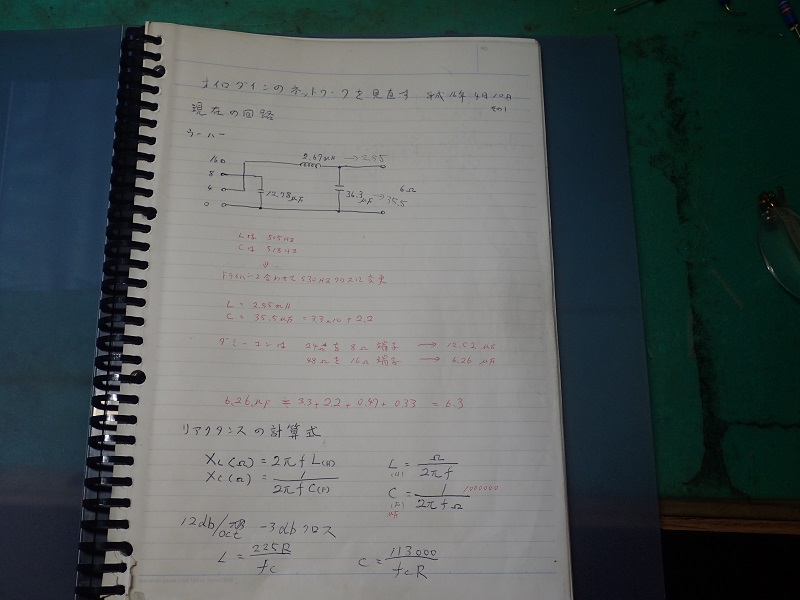 オイロダインのネットワークを見直す 平成16年4月10日
その1
現在の回路
ウーハー
16
8
4
0
2.67mH → 2.55
12.78μF
36.3μF → 35.5
6Ω
Lは 505Hz
Cは 518Hz
↓
ドライバーと合わせて530Hzクロスに変更
L = 2.55mH
C = 35.5μF = 33,10 + 2.2
ダミーコンは 24Ωを 8Ω端子 → 12.52μF
48Ωを 16Ω端子 → 6.26μF
6.26μF = 3.3 + 2.2 + 0.47 + 0.33 = 6.3
リアクタンスの計算式
XL(Ω) = 2πf L(H)
XC(Ω) = 1 / 2πf C(F)
L(H) = Ω / 2πf
C(F) μF = 1 / 2πfΩ 1000000
12db/oct -3dbクロス
L = 225R / fc
C = 113000 / fcR